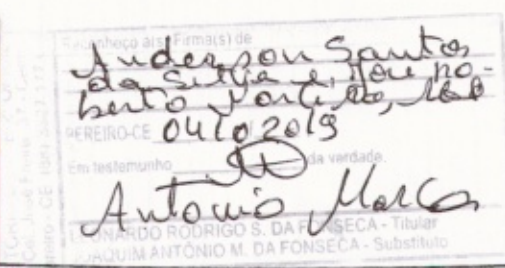 Reconheço a(s) Firma(s) de
Anderson Santos
da Silva e, José Ro-
berto
PEREIRO-CE 04/10/2019
Em testemunho da verdade.
Antonio Marcos
LEONARDO RODRIGO S. DA FONSECA - Titular
JOAQUIM ANTÔNIO M. DA FONSECA - Substituto